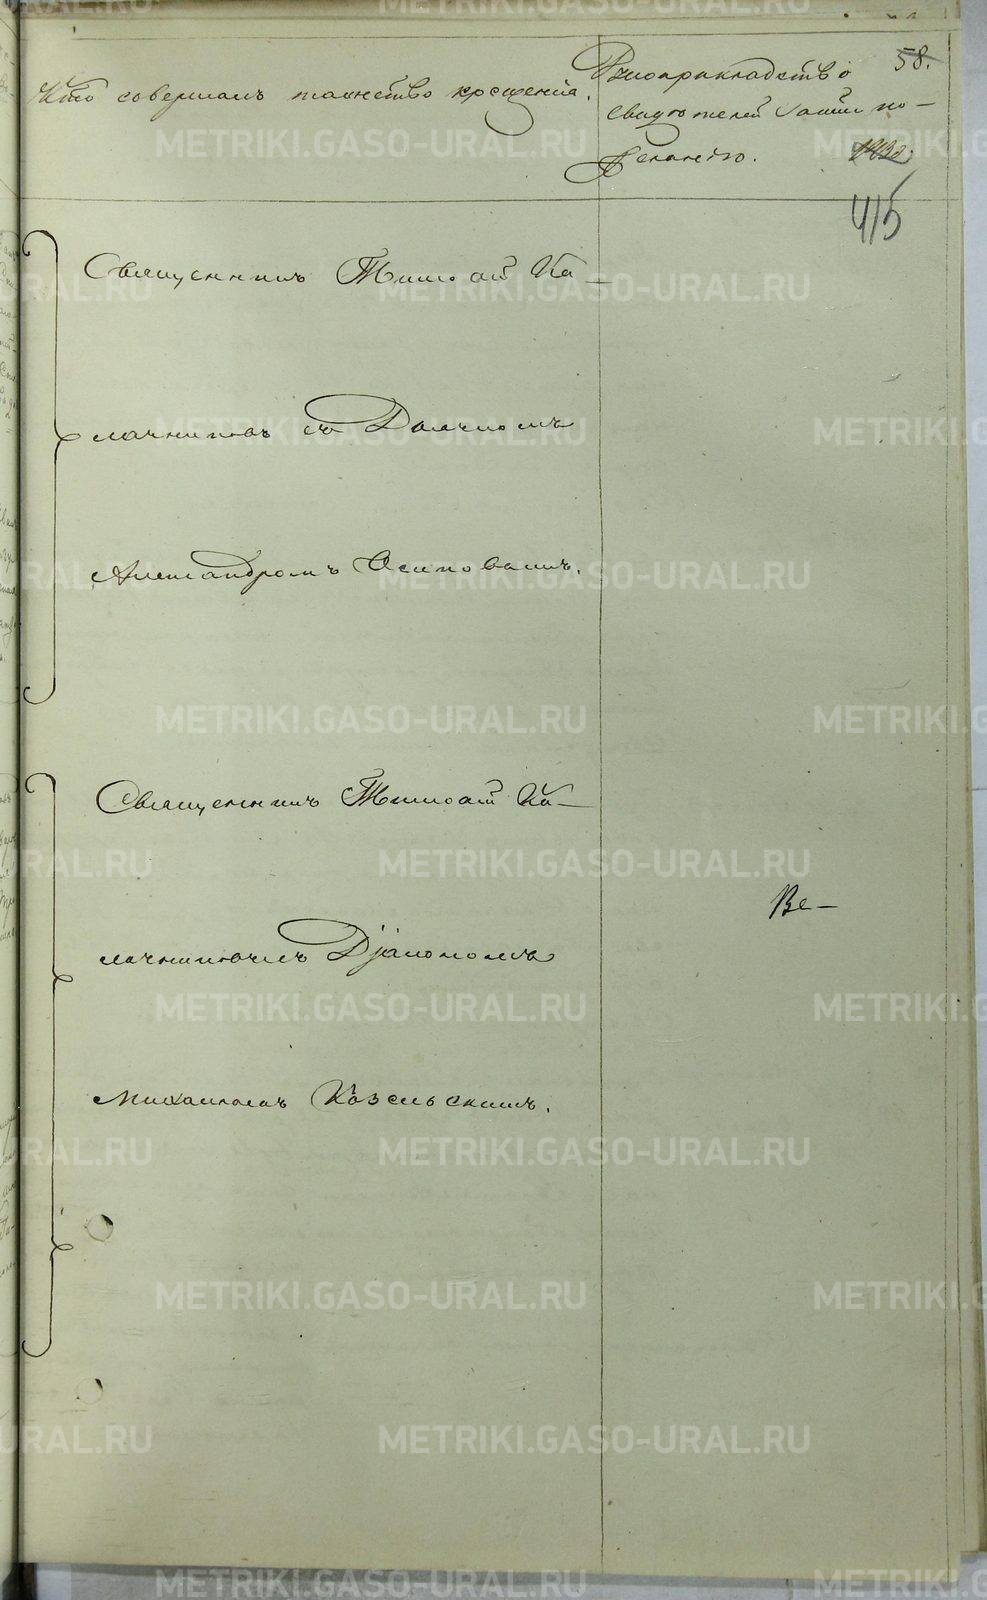 58.
Кто совершалъ таинство крещенія.
Рукоприкладство
свидѣтелей записи по
желанію.
415
Священникъ Тимофей Ка-
лачниковъ съ Діакономъ
Александромъ Осиповымъ.
Священникъ Тимофей Ка-
лачниковъ съ Діакономъ
Михаиломъ Козельскимъ.
Ве-
METRIKI.GASO-URAL.RU